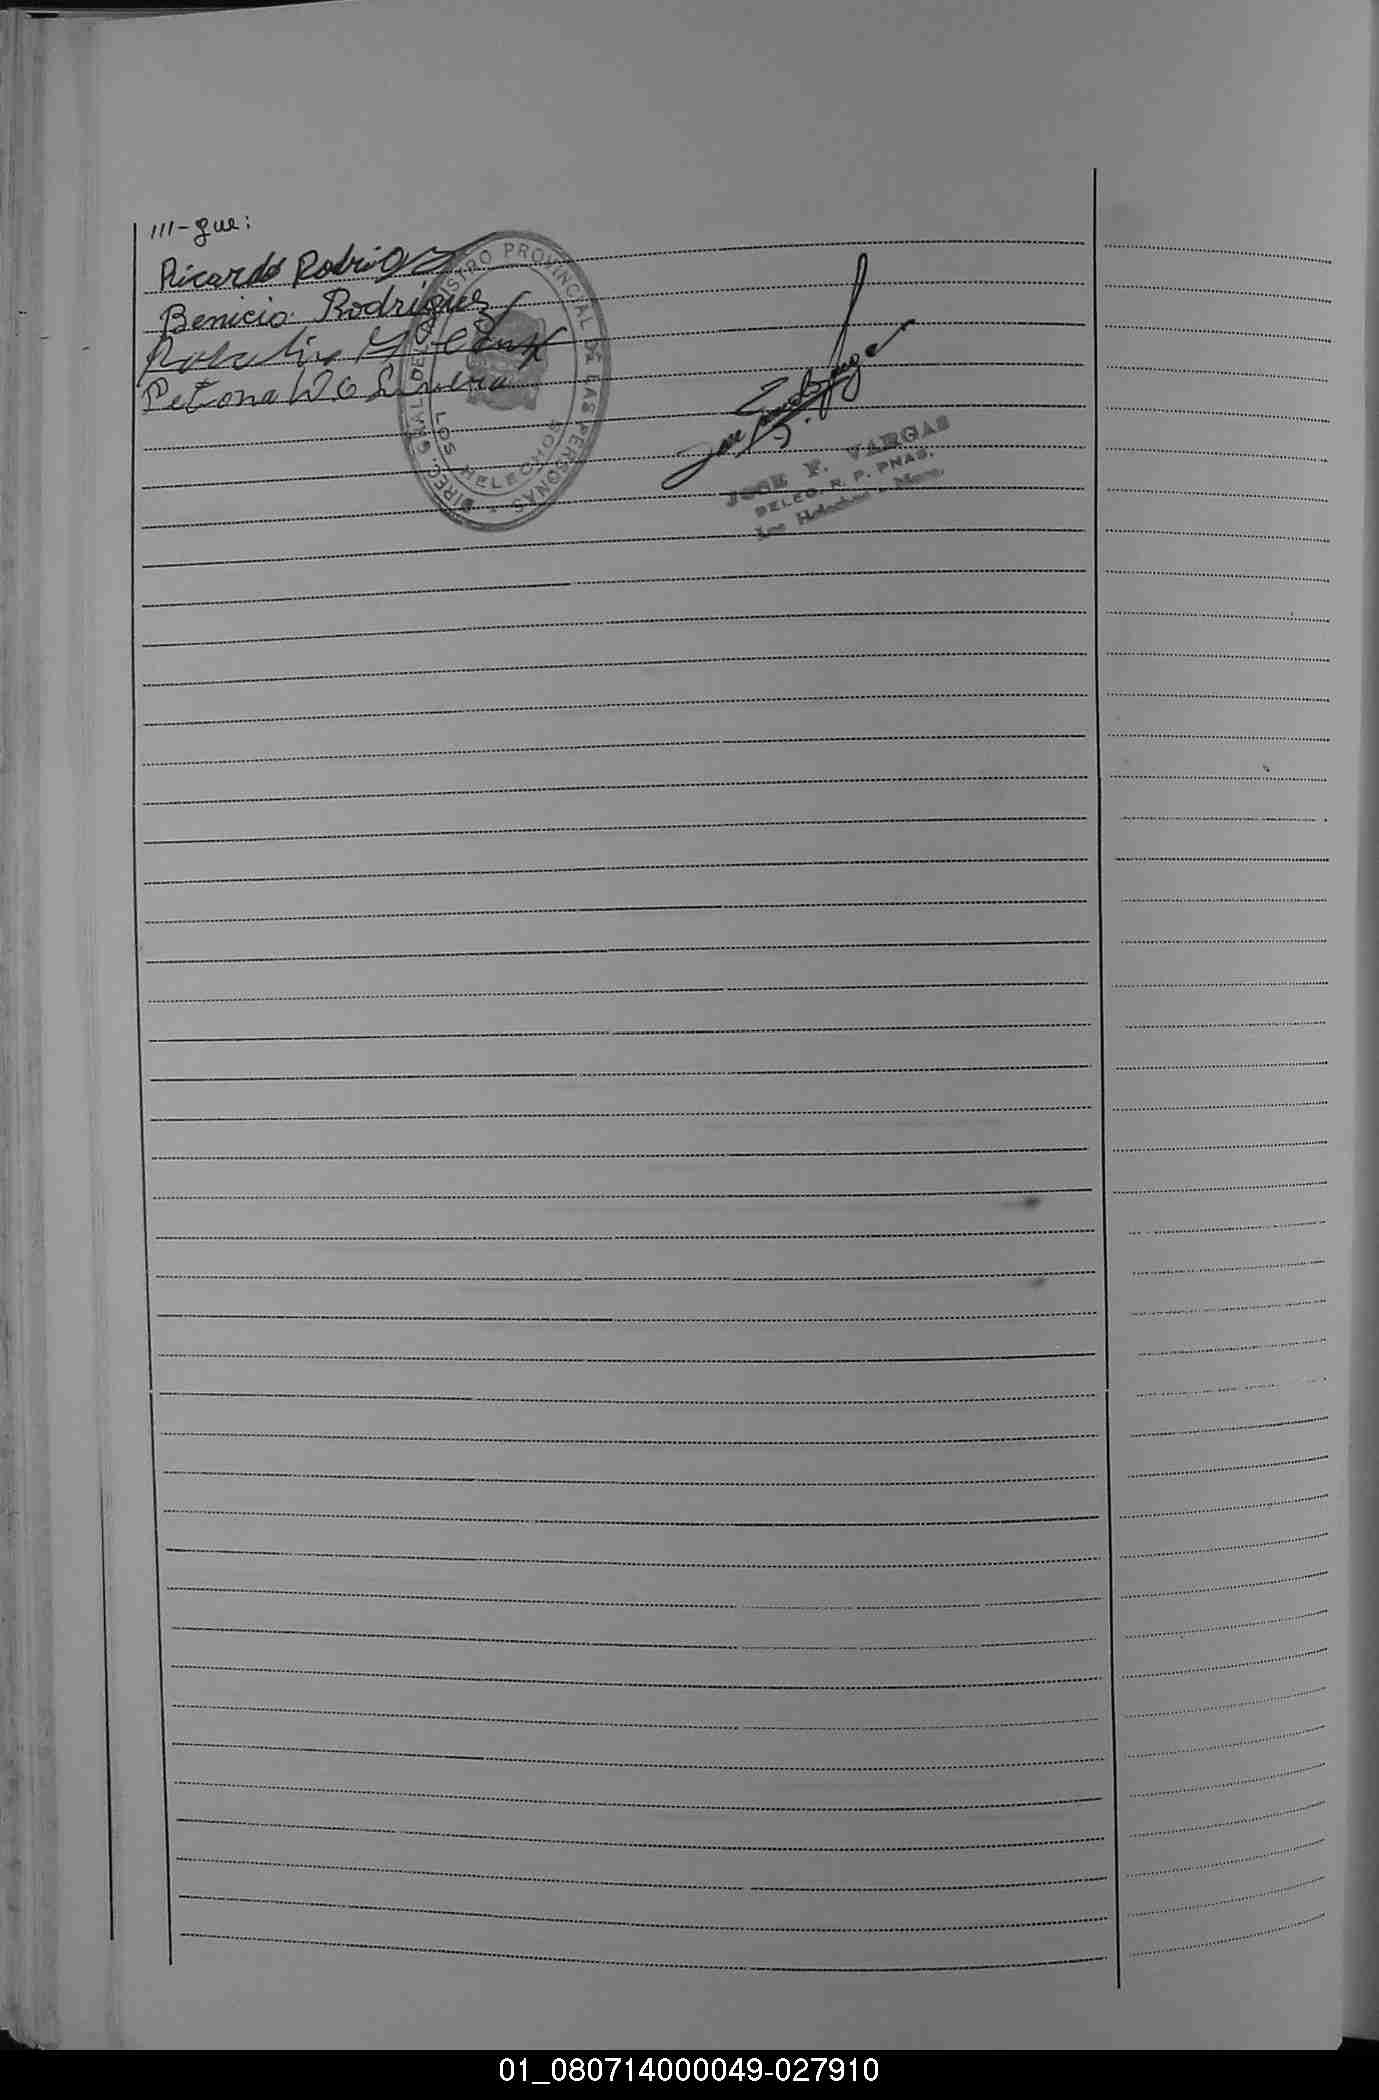 ///-gue:
Ricardo Rodrigz
Benicio Rodriguez
Petona
DIREC. GRAL. DEL REGISTRO PROVINCIAL DE LAS PERSONAS
LOS HELECHOS
JOSE F. VARGAS
DELEG. R. P. PNAS.
Los Helechos - Mnes.
01_080714000049-027910